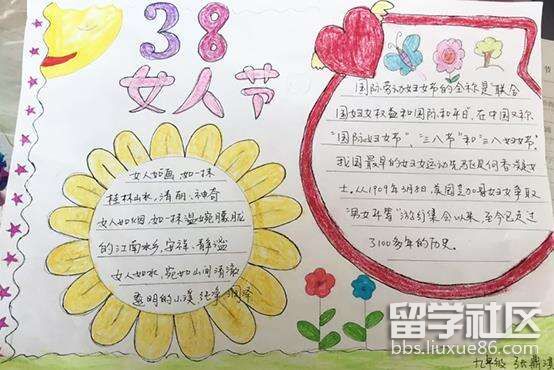 38
女人节
女人如画,如一抹
桂林山水,清丽、神奇
女人如烟,如一抹温婉朦胧
的江南水乡,安祥、静谧
女人如水,宛如山间清澈
透明的小溪
国际劳动妇女节的全称是"联合
国妇女权益和国际和平日",在中国又称
"国际妇女节"、"三八节"和"三八妇女节"。
我国最早的妇女运动先驱是何香凝女
士。从1909年3月8日,美国芝加哥女工争取
"男女平等"游行集会以来,至今已走过
了100多年的历史。
九年级 张
留学社区
bbs.liuxue86.com